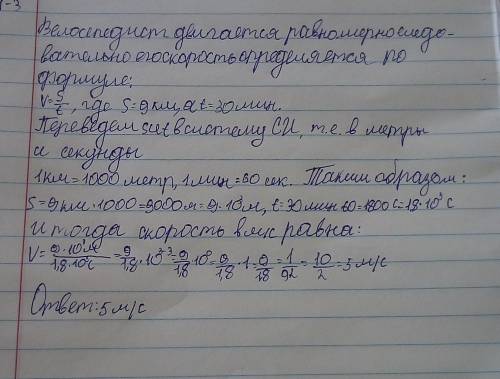 1-3
Велосепедист двигается равномерно следо-
вательно его скорость определяется по
формуле:
V=S/t, где S=9 км, а t=30 мин.
Переведем s и t в систему СИ, т.е. в метры
и секунды
1км=1000 метр, 1 мин=60 сек. Таким образом:
S=9 км·1000=9000м=9·10³м, t=30 мин·60=1800 с=1,8·10³ с
И тогда скорость в м/с равна:
V=9·10³м/1,8·10³с=9/1,8·10³⁻³=9/1,8·10⁰=9/1,8·1=9/1,8=1/0,2=10/2=5 м/с
Ответ: 5 м/с